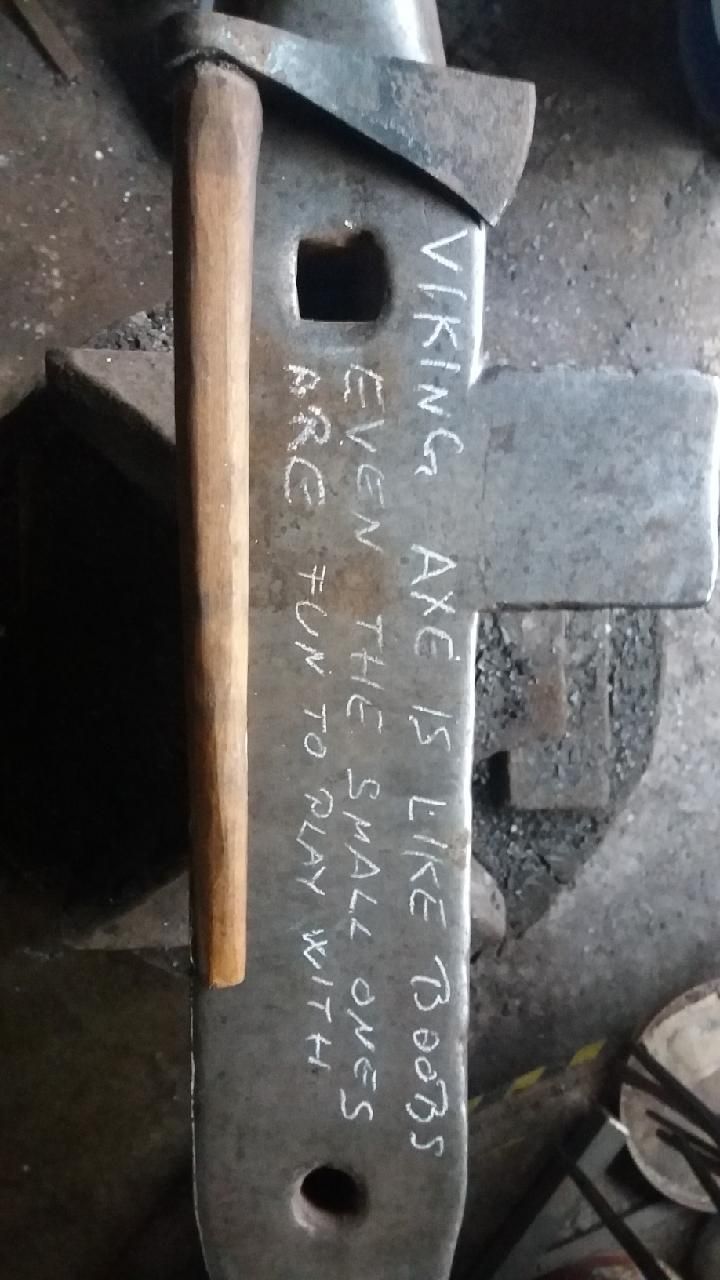 VIKING AXE IS LIKE BOOBS
EVEN THE SMALL ONES
ARE FUN TO PLAY WITH